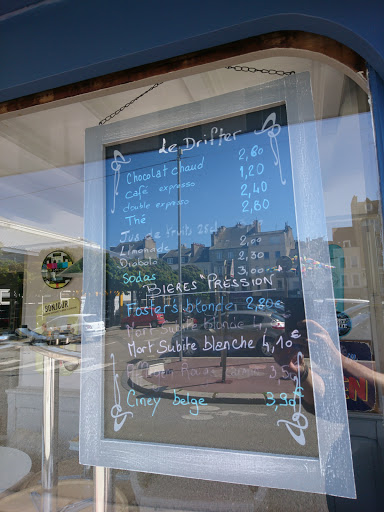 de Drifter
Chocolat chaud 2,80
café expresso 1,20
double expresso 2,40
Thé 2,80
Jus de fruits 25cl
Limonade 2,00
Diabolo 2,30
Sodas 3,00
BIÈRES "PRESSION"
Fosters blonde 2,80€
Mort Subite blonde 4,
Mort Subite blanche 4,10€
3,50
Ciney belge 3,90€
BONJOUR